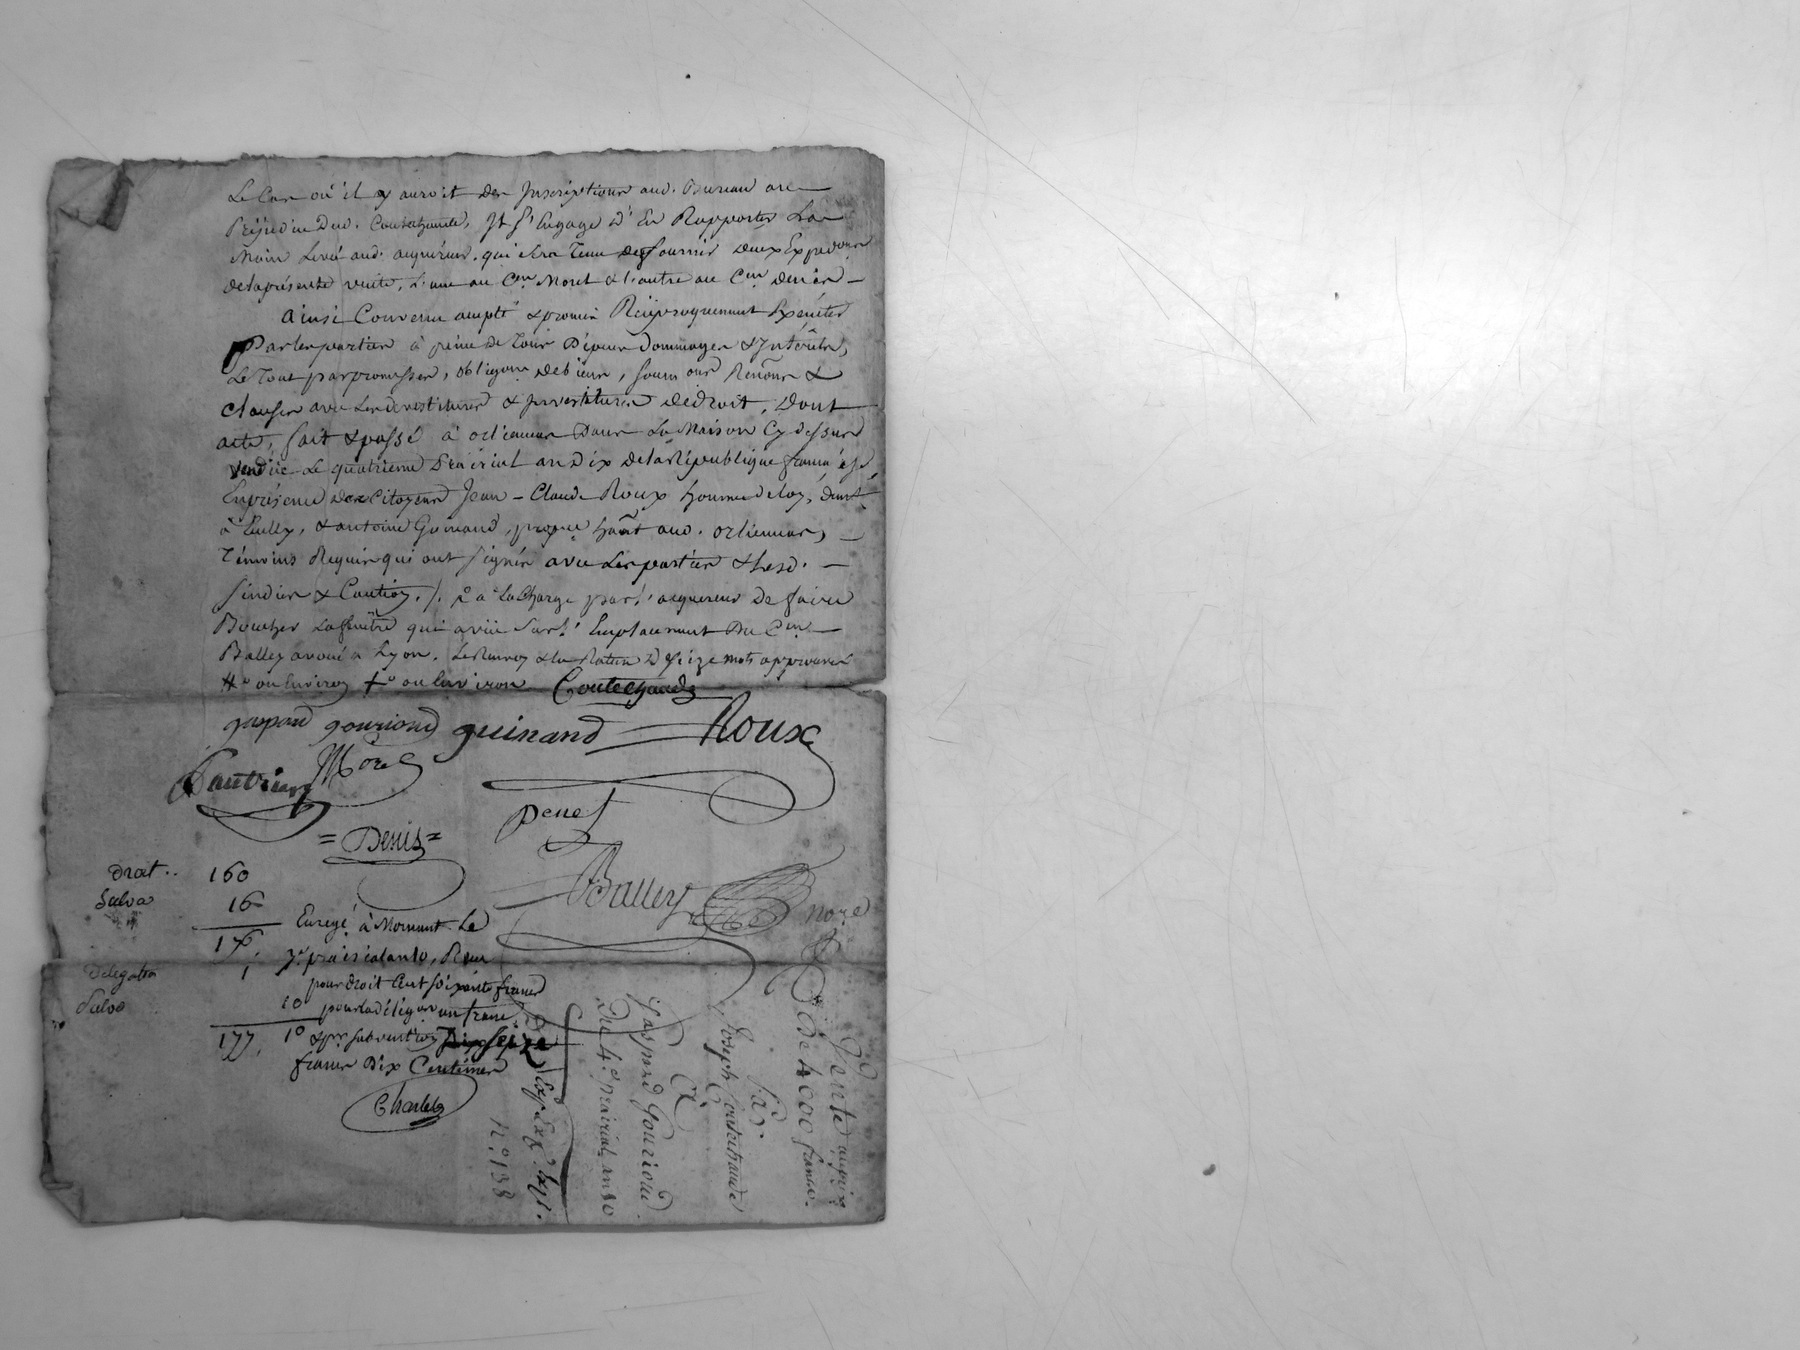 Le Cas où il y auroit des Inscriptions aud. Bureau au
préjudice Dud. Coutechaude, Il s'Engage D'En Rapporter La
Main Levée aud. acquéreur. qui sera Tenu de fournir deux Expeđons
de la présente vente, L'une au Cen Morel & l'autre au Cen denis –
ainsi Convenu accepté & promis Réciproquement Exécuter
Par les parties à peine de Tous Dépens Dommages & Intérêts,
Le Tout par promesses, obligons de biens, soumons Renons &
clauses avec Les devestitures & Investitures de droit, Dont
acte, fait & passé à orliennas Dans La Maison Cy dessus
vendue Le quatrieme Prairial an Dix de la République française
En présence des Citoyens Jean-Claude Roux homme de loy, demt
à , & antoine Guinand, propre habt aud. orliennas, –
Témoins Requis qui ont signés avec Les parties & Lesd. –
& Caution ./. & a La Charge par l'acquereur De faire
Boucher La fenêtre qui a vüe sur l'Emplacement Du Cen
Balley avoué a Lyon. Le Renvoy & La Rature De seize mots approuvés
ou Environ ou Environ Coutechaude
gaspard gouriond guinand Roux
Morel
Penet
= Denis =
Balley
nore
Droit .. 160
Subvon 16
176.
Delegation 1
Subvon 10
177. 10
Enregé à Mornant Le
prairial an 10, Reçu
pour droit Cent soixante francs
pour la délégaon un franc
& pr subvention seize
francs Dix Centimes
Charlet
Vente
De 4000 francs.
Joseph Coutechaude
à
Gaspard Gouriond.
Du 4e prairial an 10
N.° 138